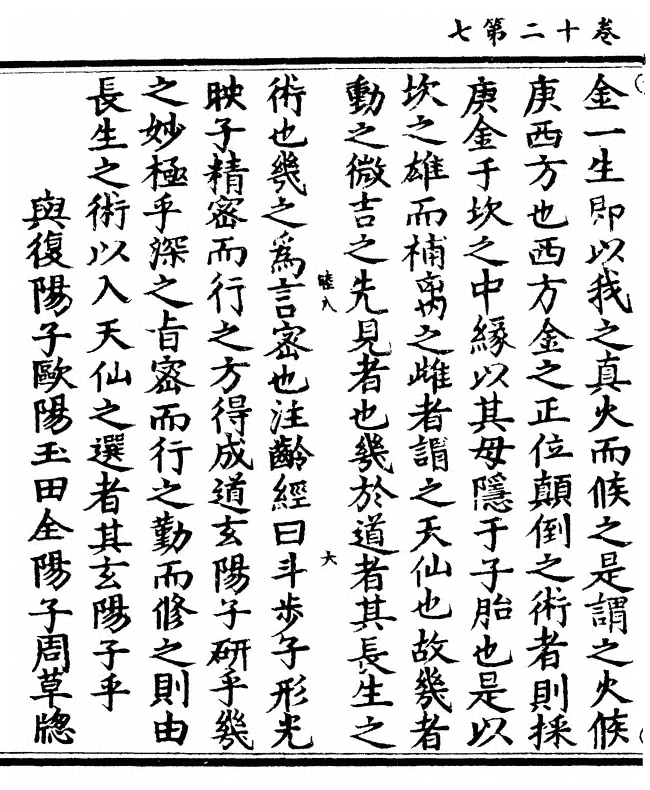 卷十二第七
金一生即以我之真火而候之是謂之火候
庚西方也西方金之正位顛倒之術者則採
庚金于坎之中緣以其母隱于子胎也是以
坎之雄而補离之雌者謂之天仙也故幾者
動之微吉之先見者也幾於道者其長生之
術也幾之爲言密也注齡經曰斗步子形光
映子精密而行之方得成道玄陽子研乎幾
之妙極乎深之旨密而行之勤而修之則由
長生之術以入天仙之選者其玄陽子乎
與復陽子歐陽玉田全陽子周草牕